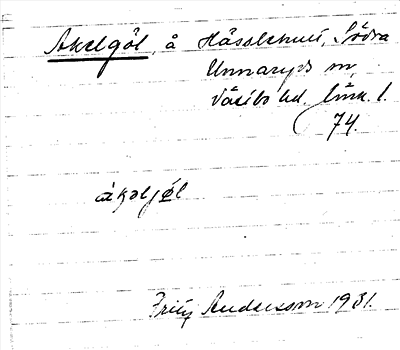 Akelgöl, å Hässlehult, Södra
Unnaryds sn,
Västbo hd. Jönk. l.
74.
ákəljǿl
Fritz Andersson 1931.